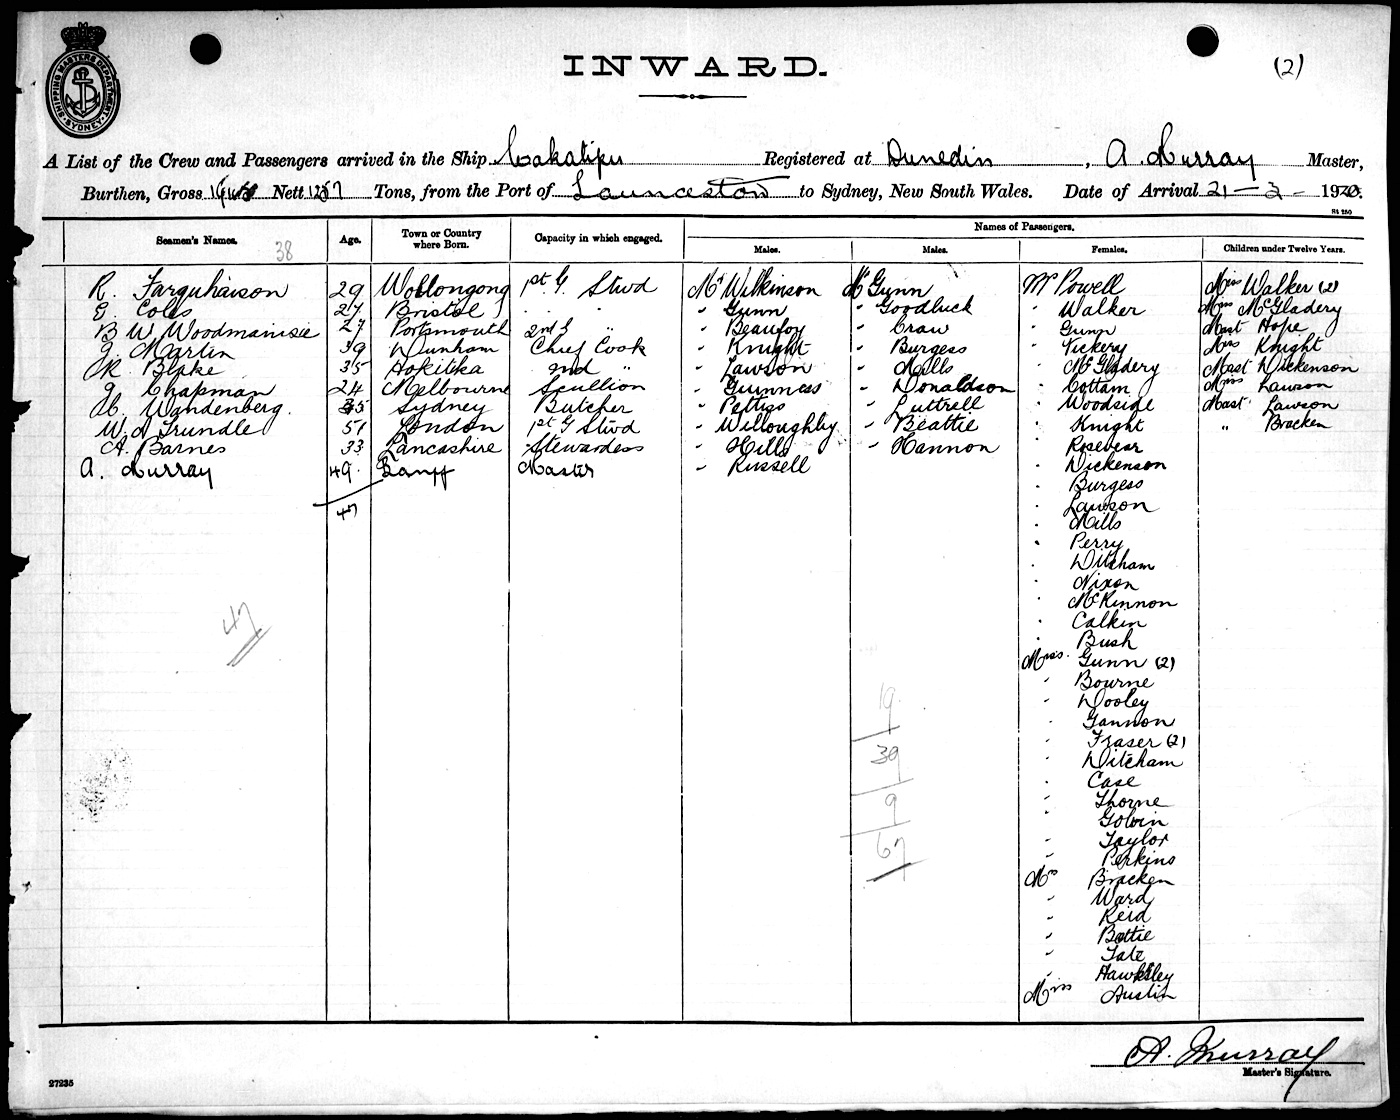 SHIPPING MASTERS DEPARTMENT
SYDNEY
INWARD.
(2)
A List of the Crew and Passengers arrived in the Ship Wakatipu Registered at Dunedin, A. Murray Master,
Burthen, Gross Nett 1257 Tons, from the Port of Launceston to Sydney, New South Wales. Date of Arrival 21-3-1920.
St 250
Names of Passengers.
Seamen's Names. 38 Age. Town or Country where Born. Capacity in which engaged. Males. Males. Females. Children under Twelve Years.
R. Farquharson 29 Wollongong 1st G. Stwd Mr Wilkinson Mr Gunn Mrs Powell Miss Walker (2)
E. Coles 27 Bristol " " " Gunn " Goodluck " Walker Miss McGladery
B W Woodmansie 27 Portsmouth 2nd G " " Beaufoy " Craw " Gunn Mast Hope
J. Martin 39 Dunham Chief Cook " Knight " Burgess " Vickery Miss Knight
R. Blake 35 Hokitika 2nd " " Lawson " Mills " McGladery Mast Dickenson
J. Chapman 24 Melbourne Scullion " Guinness " Donaldson " Cottam Miss Lawson
H. Wandenberg. 35 Sydney Butcher " Pettigs " Luttrell " Woodside Mast Lawson
W. A Trundle 51 London 1st G Stwd " Willoughby " Beattie " Knight " Bracken
A. Barnes 33 Lancashire Stewardess " Hills " Hannon " Rosevear
A. Murray 49. Banff Master " Russell " Dickenson
" Burgess
47 " Lawson
" Mills
" Perry
" Ditcham
" Nixon
" McKinnon
47 " Calkin
" Bush
Misses Gunn (2)
" Bourne
19 " Dooley
" Gannon
39 " Fraser (2)
" Ditcham
" Case
9 " Thorne
" Golvin
67 " Taylor
" Perkins
Mrs Bracken
" Ward
" Reid
" Battie
" Tate
" Hawksley
Miss Austin
A. Murray
Master's Signature.
27235